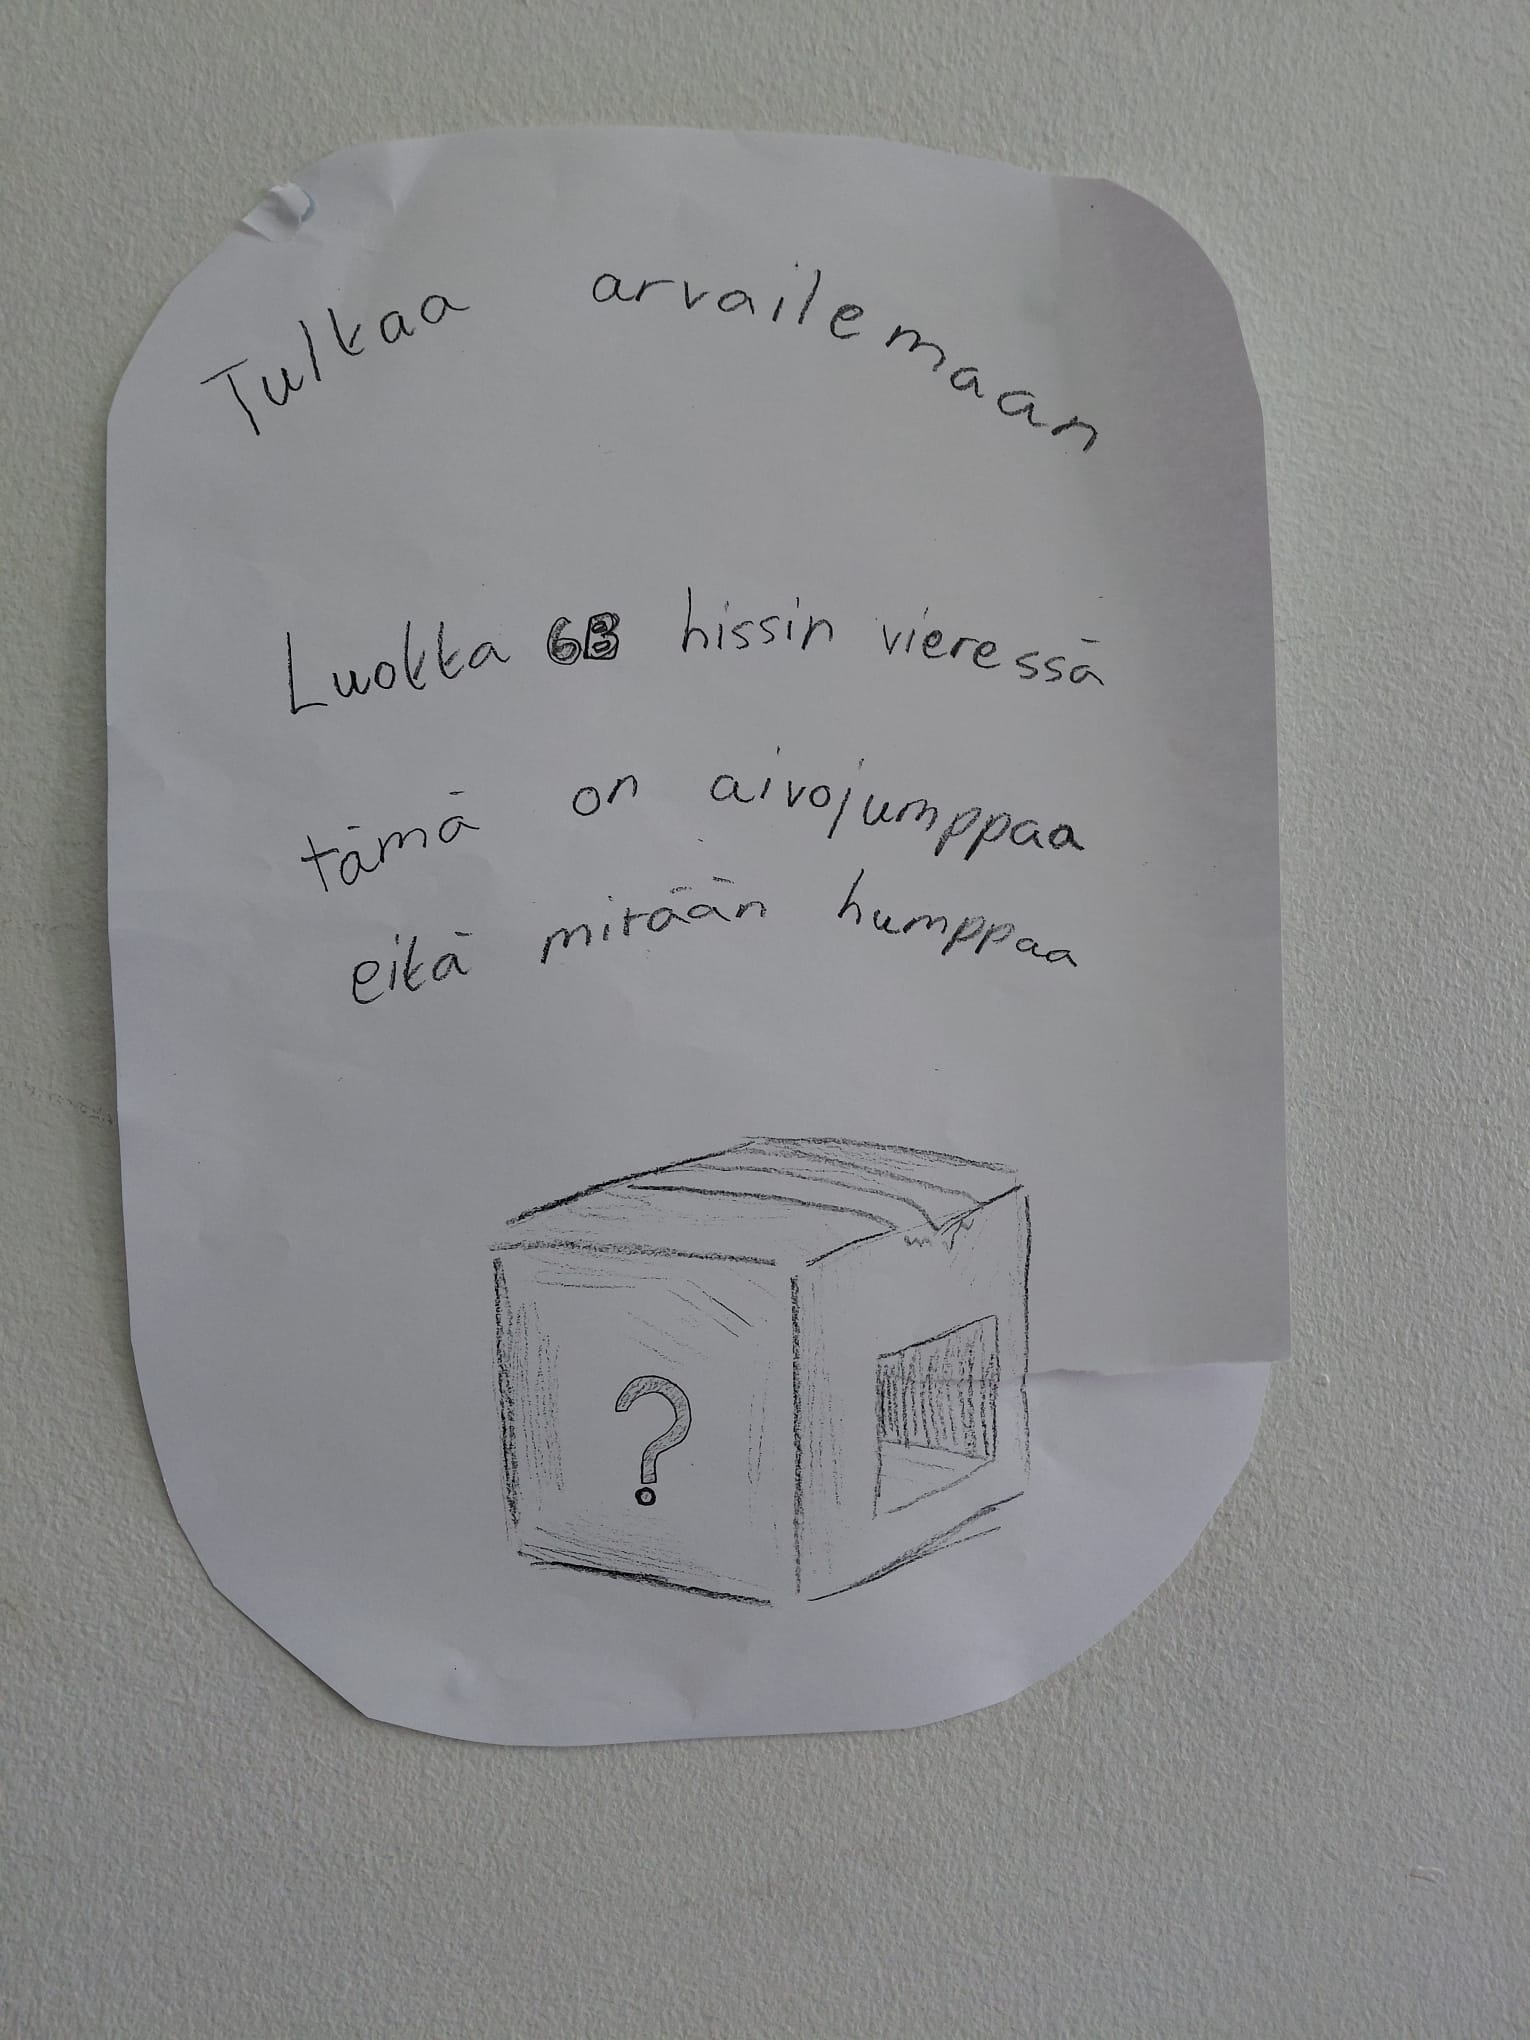 Tulkaa arvailemaan
Luokka 6B hissin vieressä
tämä on aivojumppaa
eikä mitään humppaa
?